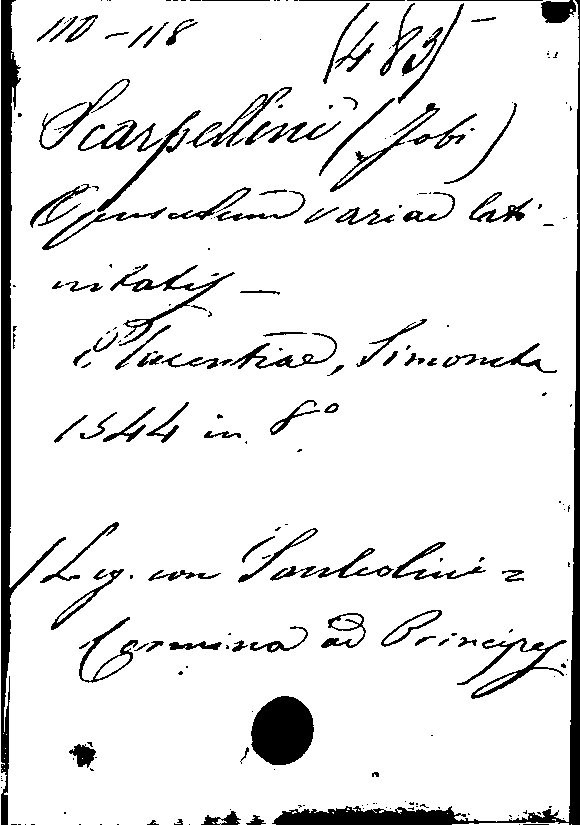 110-118 (483)-
Scarpellini (Jobi)
Opusculum variae lati-
nitatis -
Placentiae, Simoneta
1544 in 8°
(Leg. con Santolini =
Carmina ad Principes.